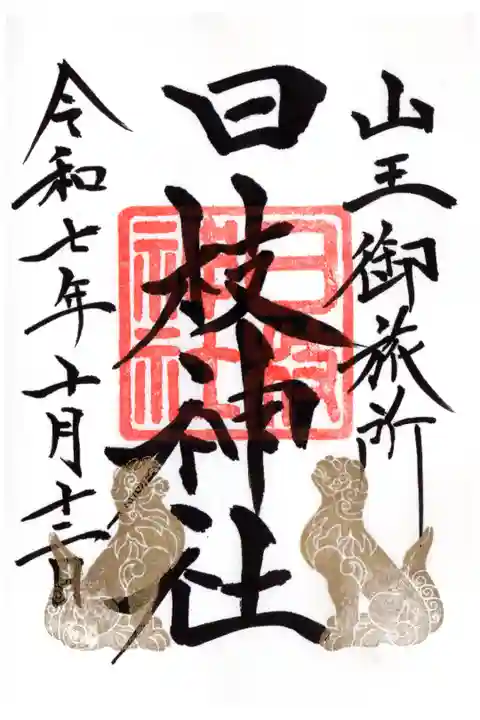 山王御旅所
日枝神社
令和七年十月十二日
日枝神社